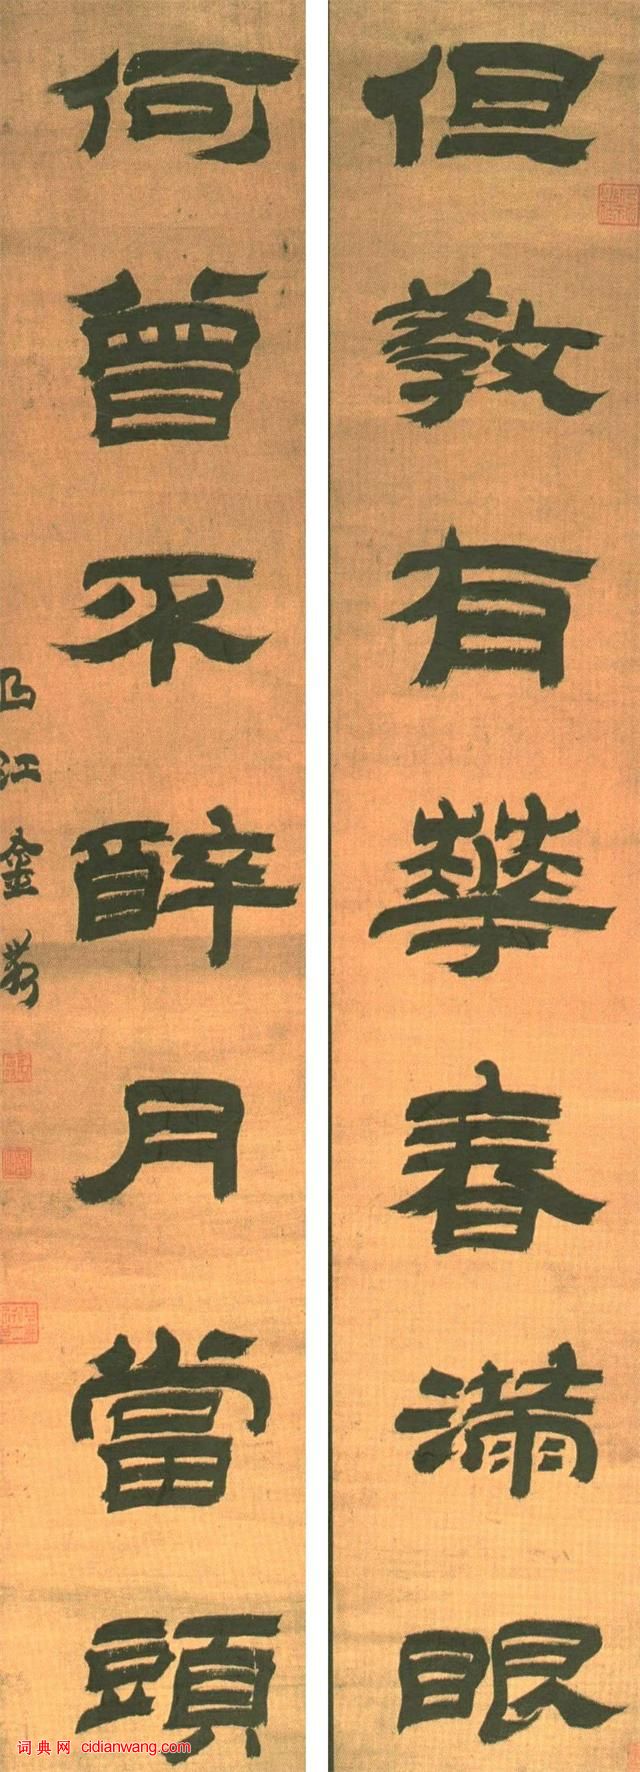 但教有華春滿眼
何曾不醉月當頭
江金
词典网 cidianwang.com